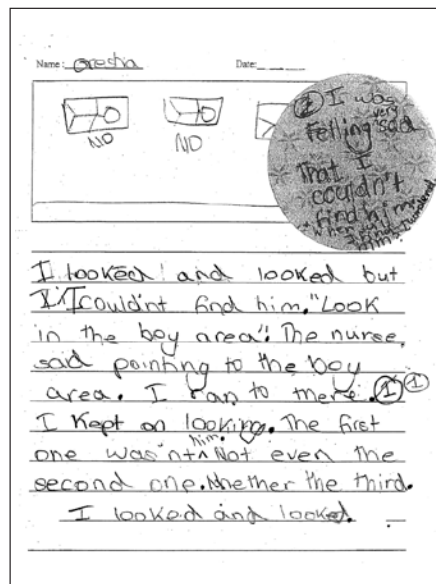 Name: Oresha Date:
NO
NO
① I was
Felling very sad
That I
couldn't
find him.
I looked and looked but
I couldn't find him. "Look
in the boy area". The nurse
said pointing to the boy
area. I ran to there. ① ①
I Kept on looking. The first
one wasn't ^ him. Not even the
second one. Nhether the third.
I looked and looked.